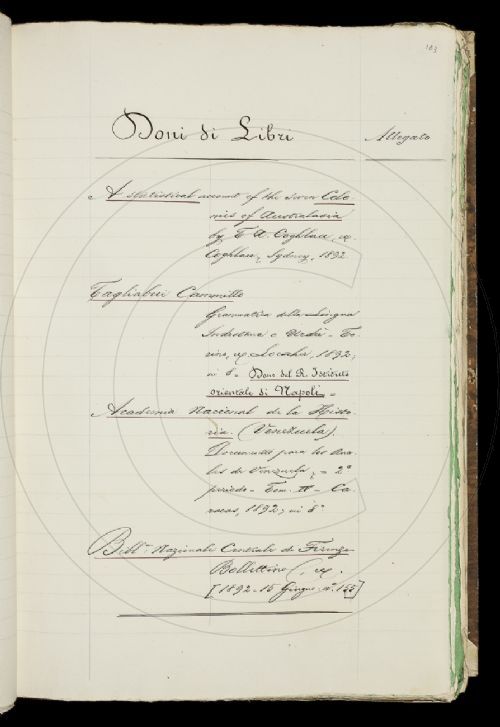 103
Doni di Libri
Allegato
A statistical account of the seven Colo-
nies of Australasia
by T. A. Coghlan, ex.
Coghlan, Sydney, 1892
Tagliabue Cammillo
Grammatica della Lingua
Indostana o Urdù - To-
rino, ex Loescher, 1892;
in 8° - Dono del R. Istituto
orientale di Napoli =
Academia Nacional de la Histo-
ria. (Venezuela).
Documentos para los Ana-
les de Venezuela; = 2°
periodo = Tom. II = Ca-
racas, 1892; in 8°
Bibl.ª Nazionale Centrale di Firenze
Bollettino, ex.
[1892. 15 Giugno. n.° 155]